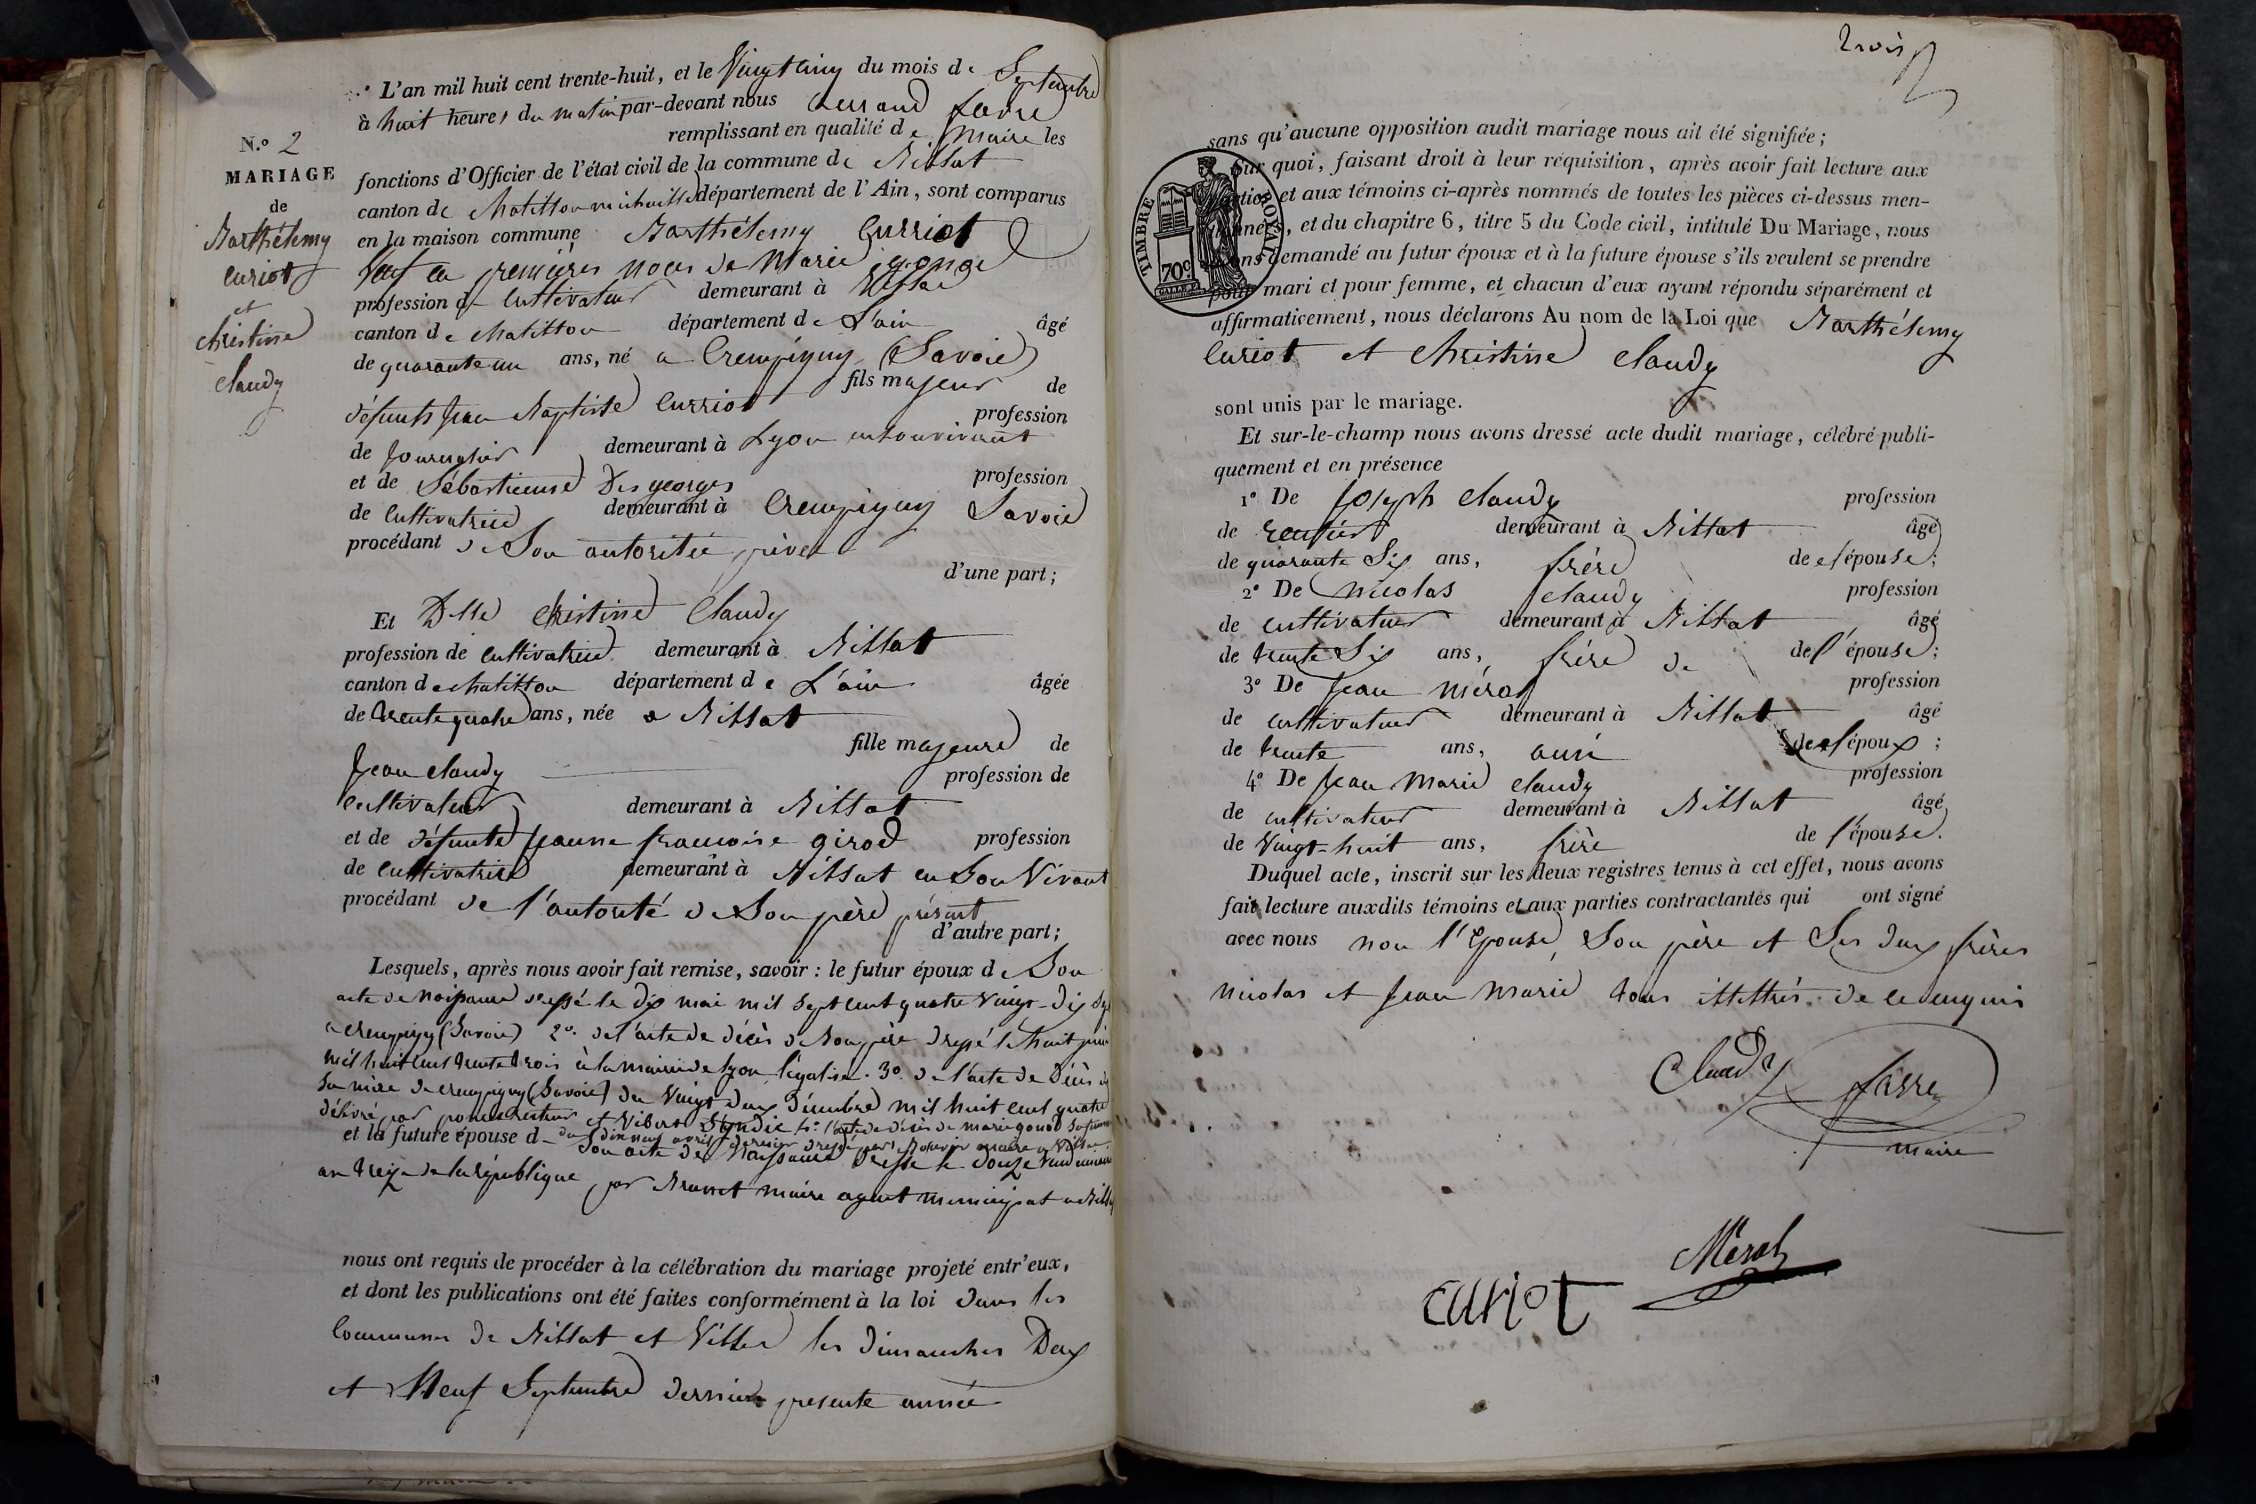 L'an mil huit cent trente-huit, et le Vingt cinq du mois de Septembre
à huit heures du matin par-devant nous favre
remplissant en qualité de Maire les
N.o 2
MARIAGE
de
Barthélemy
curiot
et
christine
claudy
fonctions d'Officier de l'état civil de la commune de Billiat
canton de chatillon michaille département de l'Ain, sont comparus
en la maison commune Barthélemy Curriot
veuf en premières noces de Marie
profession de Cultivateur demeurant à
canton de chatillon département de L'ain âgé
de quarante un ans, né a Crempigny (Savoie)
fils majeur de
défunts Jean Baptiste Curriot profession
de demeurant à Lyon en son vivant
et de Sébastienne Desgeorges profession
de Cultivatrice demeurant à Crempigny Savoie
procédant de Son autoritée privée
d'une part;
Et Dlle christine Claudy
profession de cultivatrice demeurant à Billiat
canton de chatillon département de L'ain âgée
de trente quatre ans, née a Billiat
fille majeure de
Jean claudy profession de
cultivateur demeurant à Billiat
et de défunte Jeanne francoise girod profession
de Cultivatrice demeurant à Billiat en Son Vivant
procédant de l'autorité de Son père présent
d'autre part;
Lesquels, après nous avoir fait remise, savoir : le futur époux de Son
acte de Naissance dressé le dix mai mil Sept cent quatre vingt-dix Sept
a crempigny (Savoie) 2o. de l'acte de décès de Son père dressé le huit juin
mil huit cent trente trois à la mairie de lyon légalisé. 3o. de l'acte de Décès de
Sa mère de crempigny (Savoie) du Vingt deux Décembre mil huit cent quatre
délivré par recteur et Vibert Syndic 4o. l'acte de décès de marie
du dix neuf avril dernier dressé par
et la future épouse d Son acte de Naissance dressé le douze Vendemiaire
an treize de la république par Brunet maire agent municipal a Billiat
nous ont requis de procéder à la célébration du mariage projeté entr'eux,
et dont les publications ont été faites conformément à la loi dans les
Communes de Billiat et Villes les dimanches Deux
et Neuf Septembre dernier presente année
trois
sans qu'aucune opposition audit mariage nous ait été signifiée;
Sur quoi, faisant droit à leur réquisition, après avoir fait lecture aux
parties et aux témoins ci-après nommés de toutes les pièces ci-dessus men-
tionnées, et du chapitre 6, titre 5 du Code civil, intitulé Du Mariage, nous
avons demandé au futur époux et à la future épouse s'ils veulent se prendre
pour mari et pour femme, et chacun d'eux ayant répondu séparément et
affirmativement, nous déclarons Au nom de la Loi que Barthélemy
TIMBRE ROYAL
70c
Curiot et christine claudy
sont unis par le mariage.
Et sur-le-champ nous avons dressé acte dudit mariage, célébré publi-
quement et en présence
1o De Joseph claudy profession
de rentier demeurant à Billiat âgé
de quarante Six ans, frère de l'épouse;
2o De Nicolas claudy profession
de cultivateur demeurant à Billiat âgé
de trente Six ans, frère de de l'épouse;
3o De Jean Méral profession
de cultivateur demeurant à Billiat âgé
de trente ans, ami de l'époux;
4o De Jean Marie claudy profession
de cultivateur demeurant à Billiat âgé
de Vingt-huit ans, frère de l'épouse.
Duquel acte, inscrit sur les deux registres tenus à cet effet, nous avons
fait lecture auxdits témoins et aux parties contractantes qui ont signé
avec nous non l'épouse, Son père et Ses deux frères
Nicolas et Jean Marie tous illettrés. de ce enquis
Claudy favre
maire
Méral
curiot